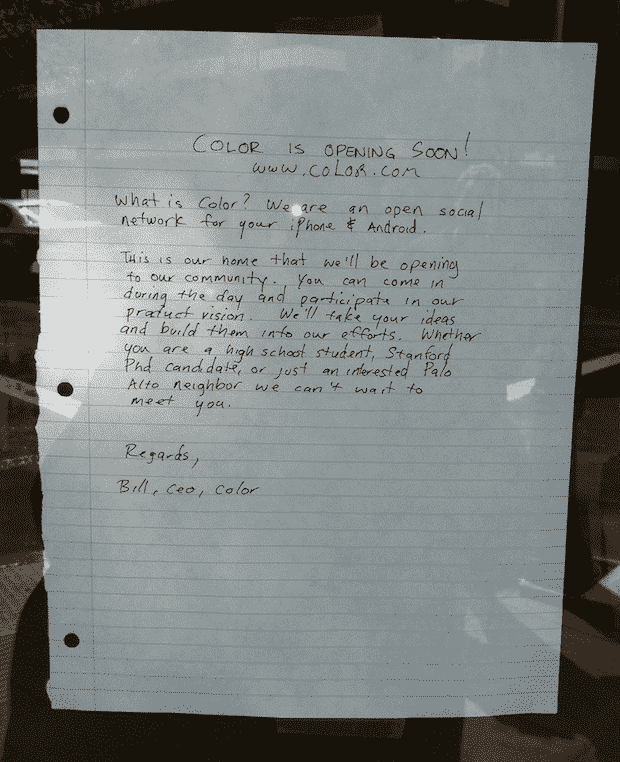 COLOR IS OPENING SOON!
www.COLOR.com
What is Color? We are an open social
network for your iPhone & Android.
This is our home that we'll be opening
to our community. You can come in
during the day and participate in our
product vision. We'll take your ideas
and build them into our efforts. Whether
you are a high school student, Stanford
Phd candidate, or just an interested Palo
Alto neighbor we can't wait to
meet you.
Regards,
Bill, Ceo, Color